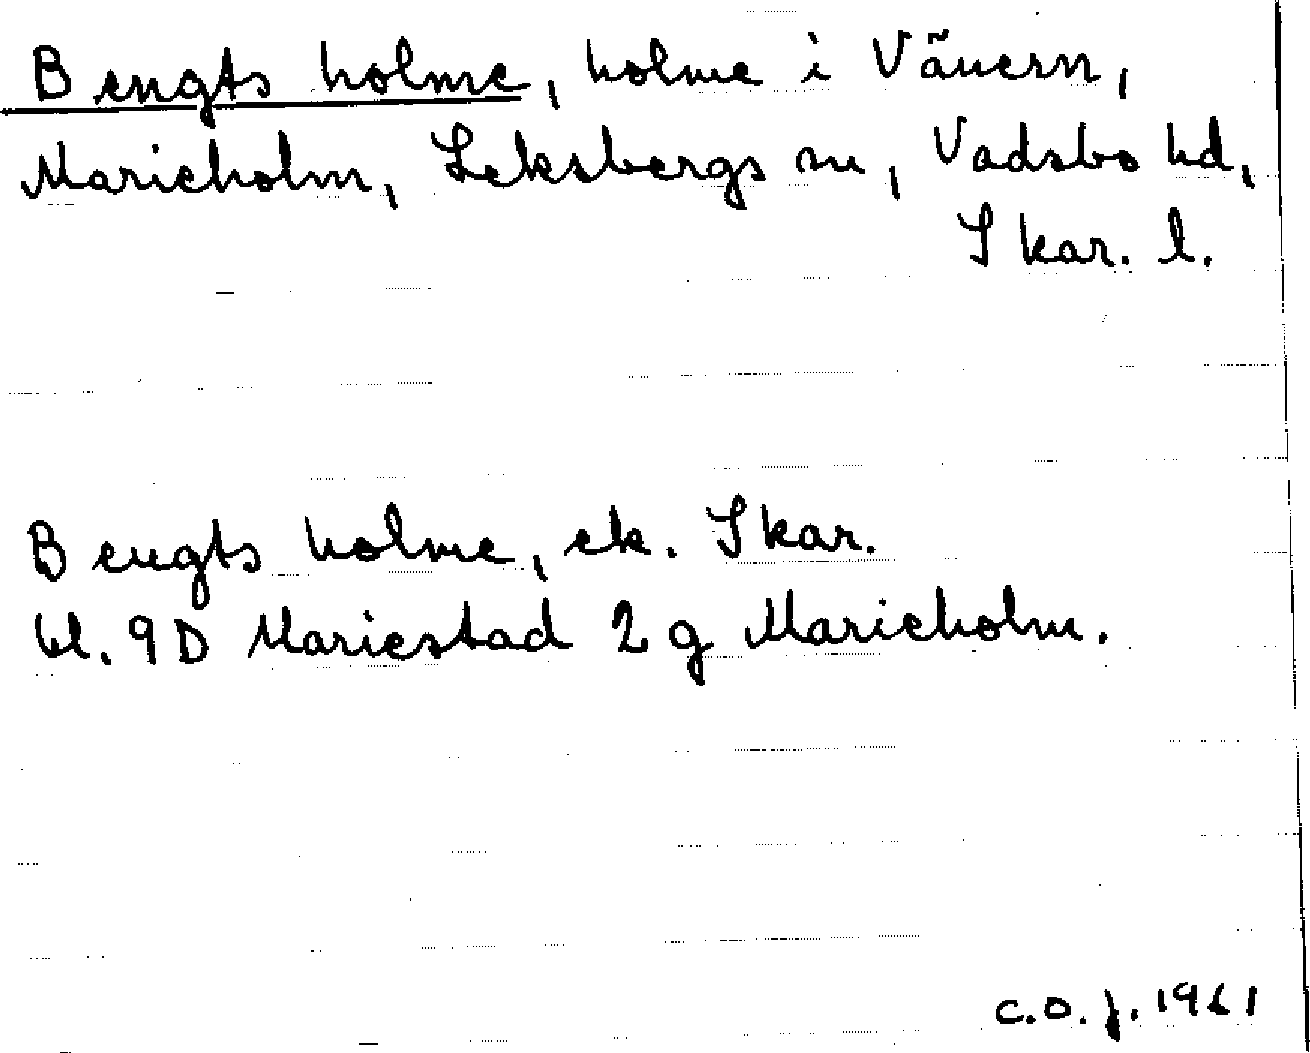 Bengts holme, holme i Vänern,
Marieholm, Leksbergs sn, Vadsbo hd,
Skar. l.
Bengts holme, ek. Skar.
bl. 9D Mariestad 2g Marieholm.
C.O.f. 1961